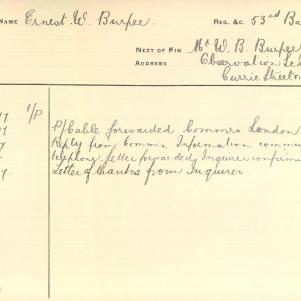 NAME Ernest W. Burpee. REG. &C. 53rd Ba
NEXT OF KIN Mr W. B. Burpee
ADDRESS Observation
Currie Street
1/P
P/Cable forwarded Commrs London
Reply from Commrs. Information commu
telephone letter forwarded, Inquirer confirm
Letter of thanks from Inquirer.